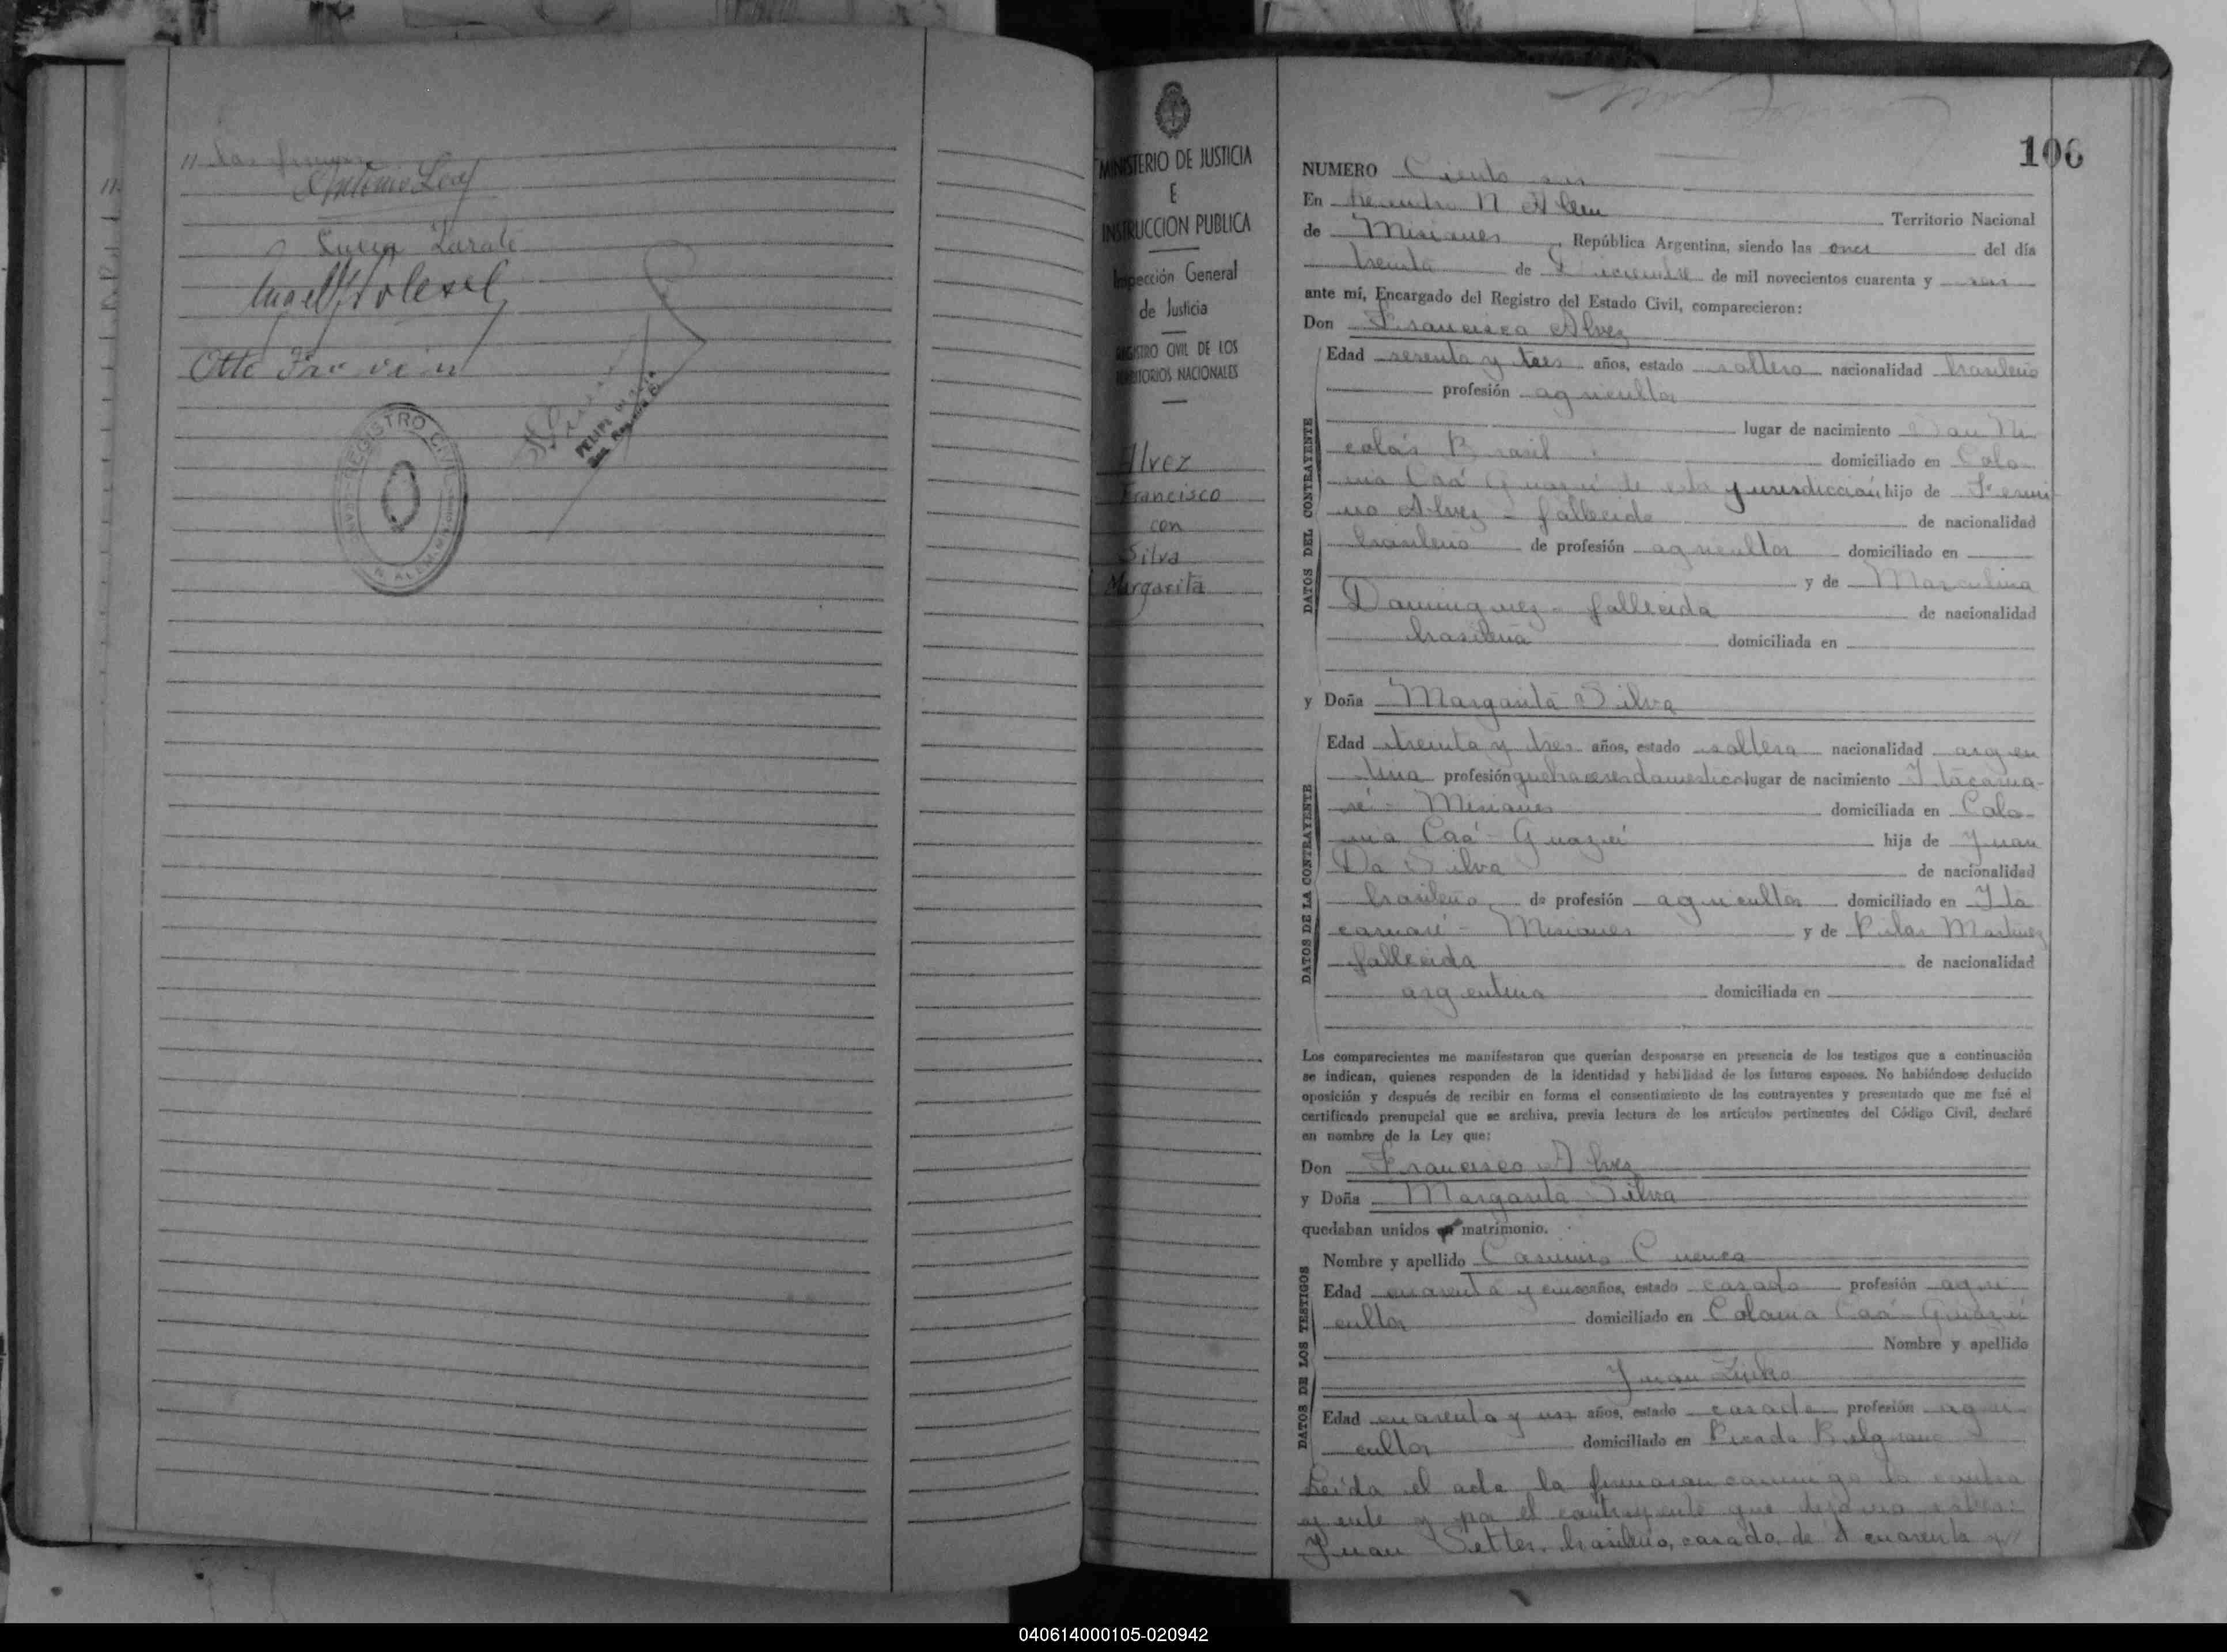 // las firmas
Antonio Leaf
Luisa Zarate
Otto
REGISTRO CIVIL
N. ALEM
FELIPE
MINISTERIO DE JUSTICIA
E
INSTRUCCION PUBLICA
Inspección General
de Justicia
REGISTRO CIVIL DE LOS
TERRITORIOS NACIONALES
Alvez
Francisco
con
Silva
Margarita
106
NUMERO Ciento seis
En Leandro N Alem Territorio Nacional
de Misiones, República Argentina, siendo las once del día
treinta de Diciembre de mil novecientos cuarenta y seis
ante mí, Encargado del Registro del Estado Civil, comparecieron:
Don Francisco Alvez
DATOS DEL CONTRAYENTE
Edad sesenta y tres años, estado soltero nacionalidad brasileño
profesión agricultor
lugar de nacimiento San Ni
colás Brasil domiciliado en Colo-
nia Caá Guazú de esta jurisdicción hijo de Fermi
no Alvez - fallecido de nacionalidad
brasileño de profesión agricultor domiciliado en
y de Marculina
Dominguez - fallecida de nacionalidad
brasileña domiciliada en
y Doña Margarita Silva
DATOS DE LA CONTRAYENTE
Edad treinta y tres años, estado soltera nacionalidad argen
tina profesión quehaceres domesticos lugar de nacimiento Itacarua-
ré - Misiones domiciliada en Colo-
nia Caá - Guazú hija de Juan
Da Silva de nacionalidad
brasileño de profesión agricultor domiciliado en Ita
caruaré - Misiones y de Pilar Martinez
fallecida de nacionalidad
argentina domiciliada en
Los comparecientes me manifestaron que querían desposarse en presencia de los testigos que a continuación
se indican, quienes responden de la identidad y habilidad de los futuros esposos. No habiéndose deducido
oposición y después de recibir en forma el consentimiento de los contrayentes y presentado que me fué el
certificado prenupcial que se archiva, previa lectura de los artículos pertinentes del Código Civil, declaré
en nombre de la Ley que:
Don Francisco Alvez
y Doña Margarita Silva
quedaban unidos en matrimonio.
DATOS DE LOS TESTIGOS
Nombre y apellido Casimiro Cuenca
Edad cuarenta y cinco años, estado casado profesión agri
cultor domiciliado en Colonia Caá - Guazú
Nombre y apellido
Juan
Edad cuarenta y un años, estado casado profesión agri
cultor domiciliado en Picada Belgrano
Leída el acta la firmaron conmigo la contra
yente y por el contrayente que dijo no saber:
Juan Setter, brasileño, casado, de cuarenta y //
040614000105-020942